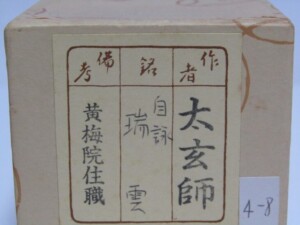 作者
太玄師
銘
自詠
瑞雲
備考
黄梅院住職
4-8